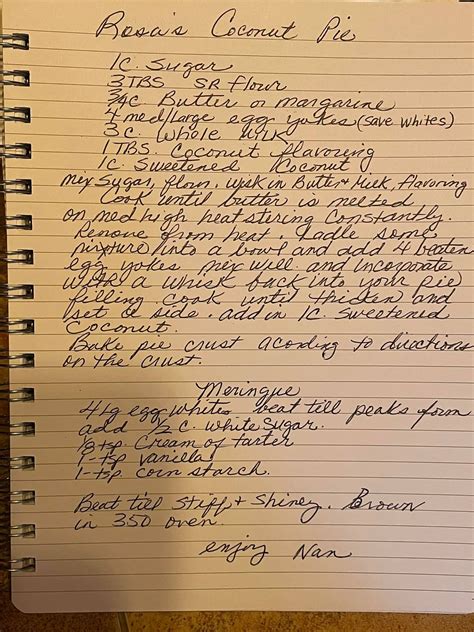 Rosa's Coconut Pie
1C. Sugar
3 TBS SR flour
3/4c. Butter or margarine
4 med/large egg yokes (save whites)
3 C. Whole Milk
1 TBS. Coconut flavoring
1C. Sweetened Coconut
mix Sugar, flour, wisk in Butter + Milk, flavoring
Cook until butter is melted
on med high heat stiring Constantly.
Remove from heat. Ladle some
mixture into a bowl and add 4 beaten
egg yokes mix well. and incoporate
with a whisk back into your pie
filling. cook until thisten and
set a side. add in 1C. Sweetened
Coconut.
Bake pie crust acording to directions
on the crust.
Meringue
4 lg egg whites beat till peaks form
add 1/2 c. white sugar.
1/8 tsp. Cream of tarter
1-tsp vanilla
1-tsp. corn starch.
Beat till Stiff + Shiney. Brown
in 350 oven.
enjoy Nan